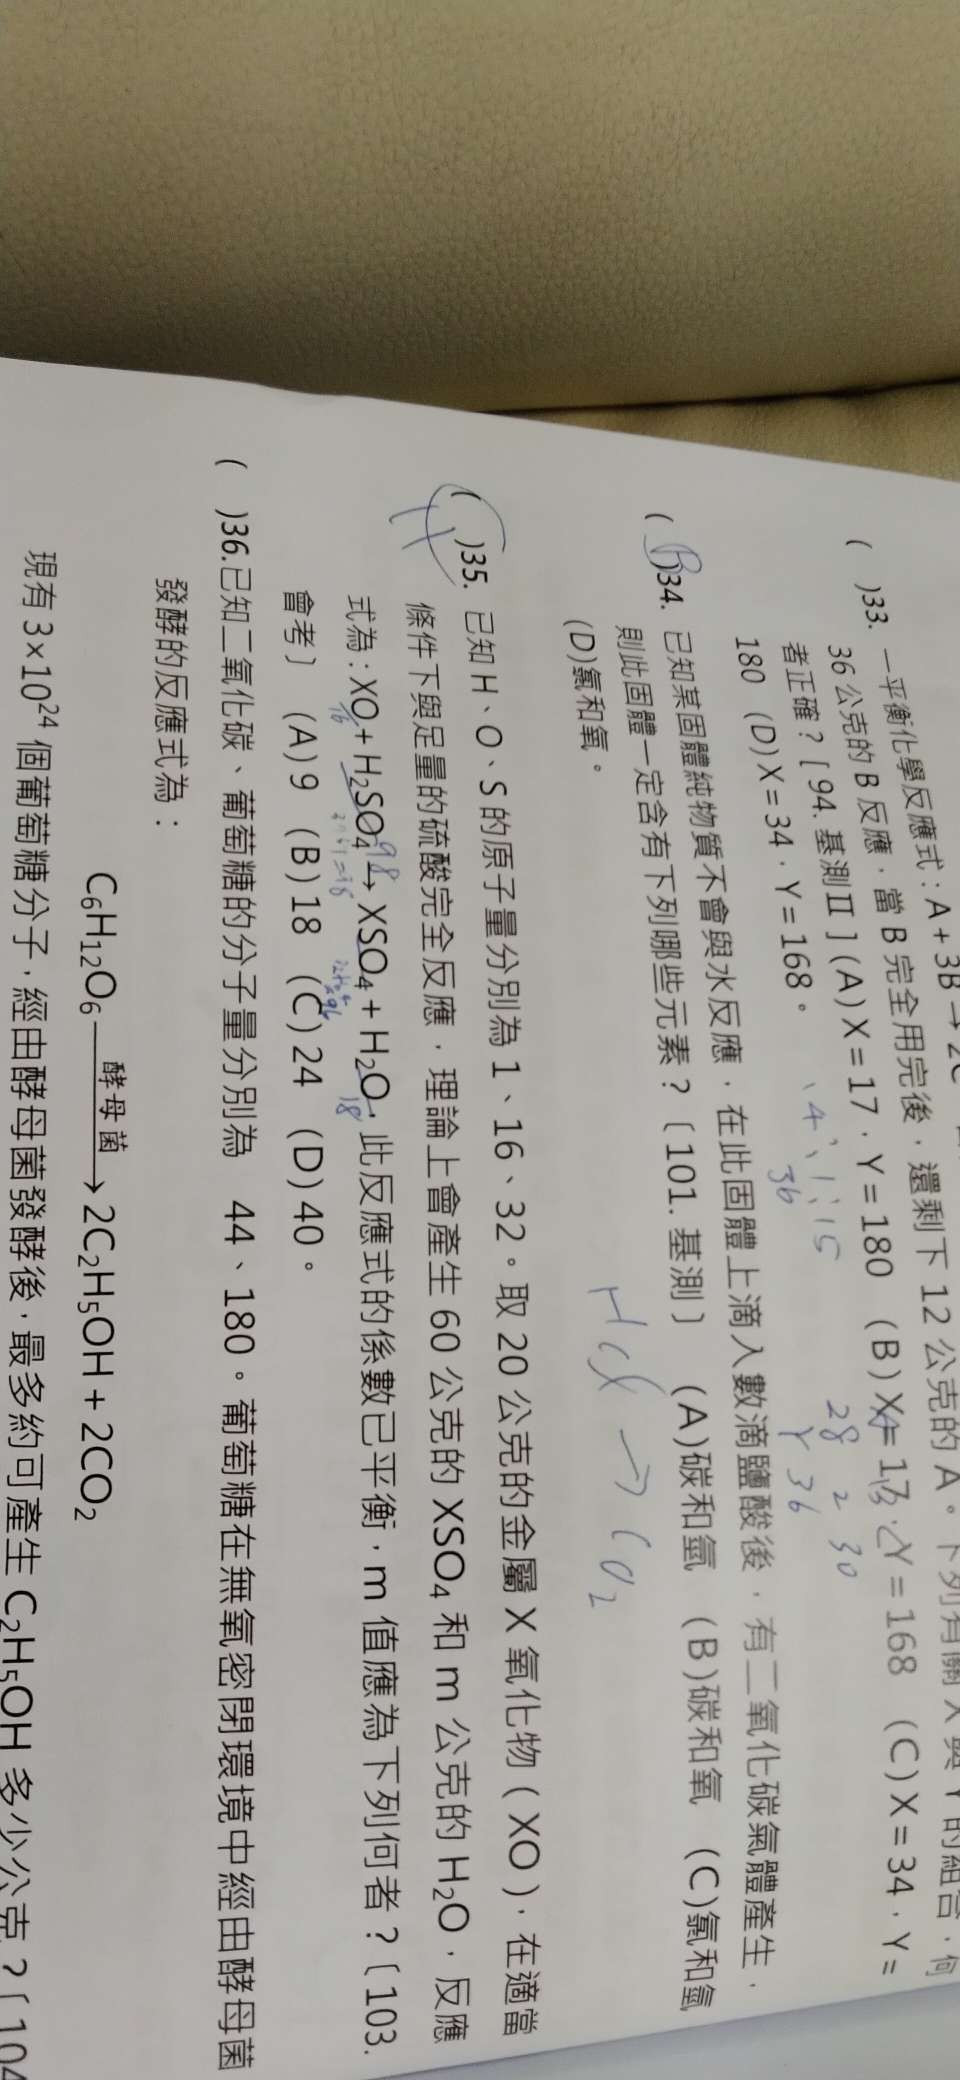 ( )33. 一平衡化學反應式：A + 3B → 2C
36 公克的 B 反應，當 B 完全用完後，還剩下 12 公克的 A。下列有關 X 與 Y 的組合，何
者正確？[ 94. 基測Ⅱ ] (A) X = 17，Y = 180 (B) X = 17，Y = 168 (C) X = 34，Y =
180 (D) X = 34，Y = 168。
4 1 15
36
28 2 30
Y 36
(B)34. 已知某固體純物質不會與水反應，在此固體上滴入數滴鹽酸後，有二氧化碳氣體產生，
則此固體一定含有下列哪些元素？〔101. 基測〕 (A)碳和氫 (B)碳和氧 (C)氯和氫
(D)氯和氧。
HCl → CO2
( )35. 已知 H、O、S 的原子量分別為 1、16、32。取 20 公克的金屬 X 氧化物 ( XO )，在適當
條件下與足量的硫酸完全反應，理論上會產生 60 公克的 XSO₄ 和 m 公克的 H₂O，反應
98
式為：XO + H₂SO₄ → XSO₄ + H₂O，此反應式的係數已平衡，m 值應為下列何者？〔 103.
16 96 18
會考〕 (A) 9 (B) 18 (C) 24 (D) 40。
( )36.已知二氧化碳、葡萄糖的分子量分別為 44、180。葡萄糖在無氧密閉環境中經由酵母菌
發酵的反應式為：
C₆H₁₂O₆ 酵母菌→ 2C₂H₅OH + 2CO₂
現有 3×10²⁴ 個葡萄糖分子，經由酵母菌發酵後，最多約可產生 C₂H₅OH 多少公克？〔 104